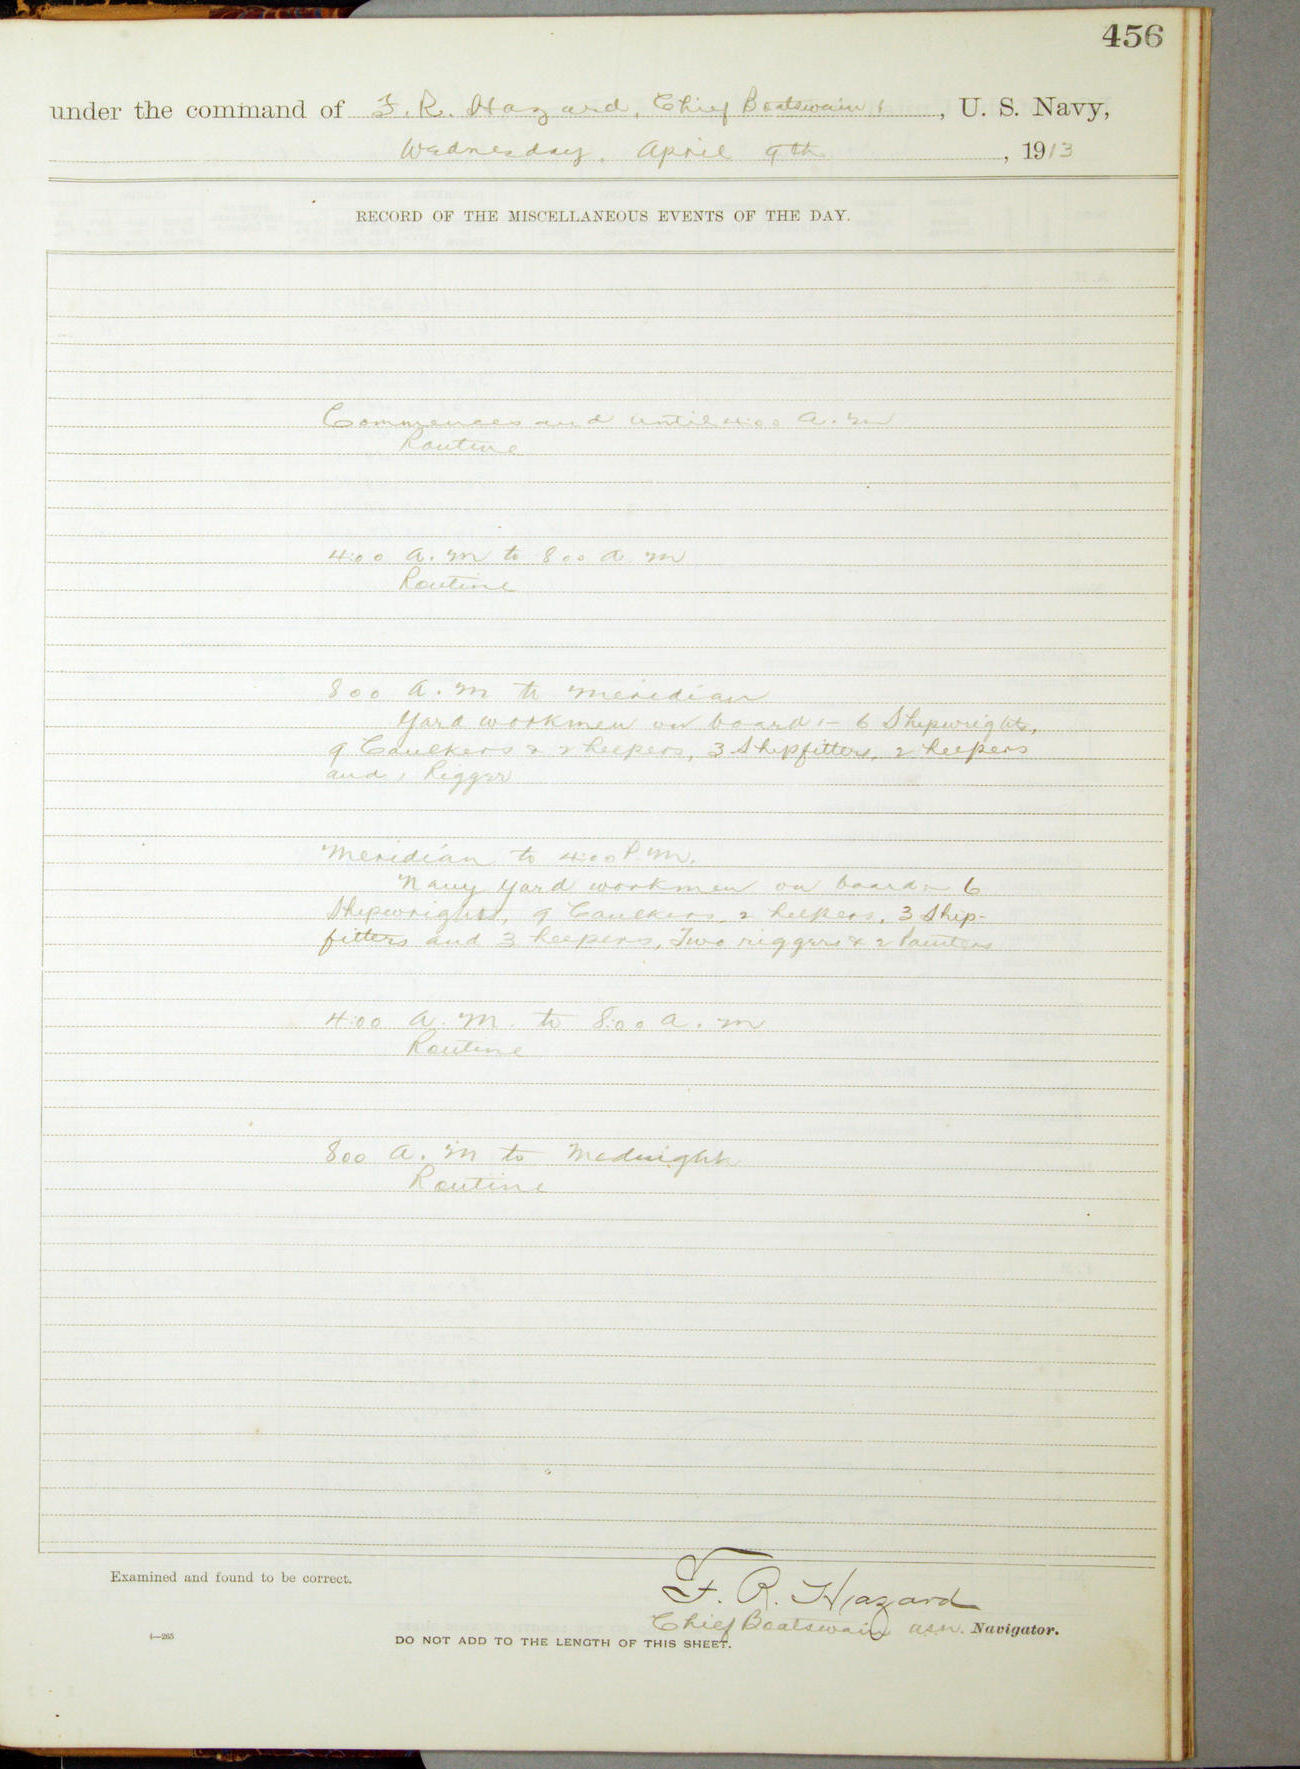 456
under the command of F. R. Hazard, Chief Boatswain, U. S. Navy,
Wednesday, April 9th, 1913
RECORD OF THE MISCELLANEOUS EVENTS OF THE DAY.
Commences and until 4:00 A. M
Routine
4:00 A. M to 8 00 A M
Routine
8 00 A. M to Meridian
Yard workmen on board :- 6 Shipwrights,
9 Caulkers & 2 helpers, 3 Shipfitters, 2 helpers
and 1 Rigger
Meridian to 4:00 P. M.
Navy Yard workmen on board :- 6
Shipwrights, 9 Caulkers, 2 helpers, 3 Ship-
fitters and 3 helpers, Two riggers & 2 Painters
4:00 A. M. to 8:00 A. M
Routine
8 00 A. M to Midnight
Routine
Examined and found to be correct.
F. R. Hazard
Chief Boatswain U.S.N. Navigator.
4—265
DO NOT ADD TO THE LENGTH OF THIS SHEET.